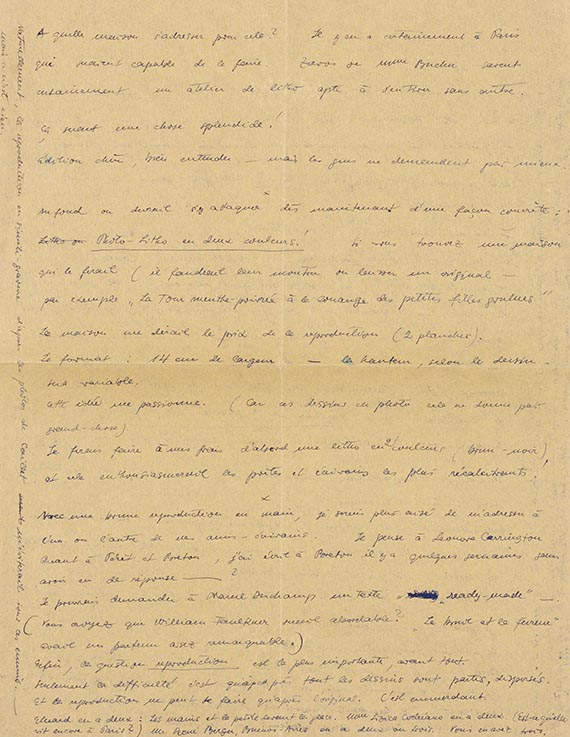 A quelle maison s'adresser pour cela? Il y en a certainement à Paris
qui soient capable de le faire. Zervos ou Mme Bucher savent
certainement un atelier de litho apte à
Ça serait une chose splendide!
édition chère, bien entendu — mais les gens ne demandent pas mieux.
Au fond on devrait s'y attaquer dès maintenant d'une façon concrète:
Litho ou Photo-Litho en deux couleurs! Si vous trouvez une maison
qui le ferait (il faudrait leur montrer ou laisser un original —
par exemple „La Tour menthe-poivrée à la louange des petites filles goulues"
La maison me dirait le prix de la reproduction (2 planches).
Le format: 14 cm de largeur — la hauteur, selon le dessin.
sera variable.
Cette idée me passionne. (Car ces dessins en photo cela ne donne pas
grand-chose)
Je ferais faire à mes frais d'abord une litho en 2 couleurs (brun-noir),
et cela enthousiasmerait les poètes et écrivains les plus récalcitrants.
Avec une bonne reproduction en main, je serais plus aisé de m'adresser à
l'un ou l'autre de nos amis-écrivains. Je pense à Leonora Carrington
Quant à Péret et Breton, j'ai écrit à Breton il y a quelques semaines sans
avoir eu de réponse — ?
Je pourrais demander à Marcel Duchamp un texte „ready-made" —.
(Vous croyez que William Faulkner serait abordable? „Le bruit et la fureur"
avait un parfum assez remarquable.)
Enfin, la question reproduction est la plus importante, avant tout.
Seulement la difficulté c'est que presque tous les dessins sont partis, dispersés.
Et la reproduction ne peut se faire qu'après l'original. C'est emmerdant.
Eluard en a deux: Les mains et la petite devant la glace. Mme Lydia en a deux. (Est-ce qu'elle
vit encore à Paris?) Mr René Berger, Buenos-Aires en a deux ou trois. Vous savez trois,
Naturellement, la reproduction en d'après les photos de vous en ennuis. —
mais ce n'est rien.